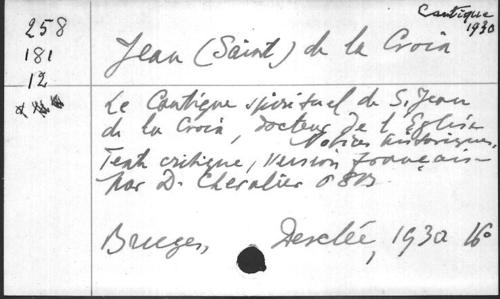 Cantique
1930
258
181
12
Jean (Saint) de la Croix
Le Cantique spirituel de S. Jean
de la Croix, docteur de l'Eglise
Notices historiques,
Texte critique, version français
par D. Chevalier OSB.
Bruges, Desclée, 1930 16°